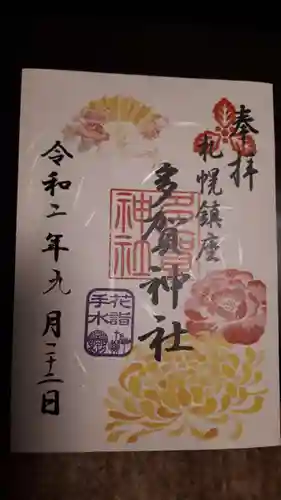 奉拝
札幌鎮座
多賀神社
多賀
神社
令和二年九月二十二日
花詣
手水